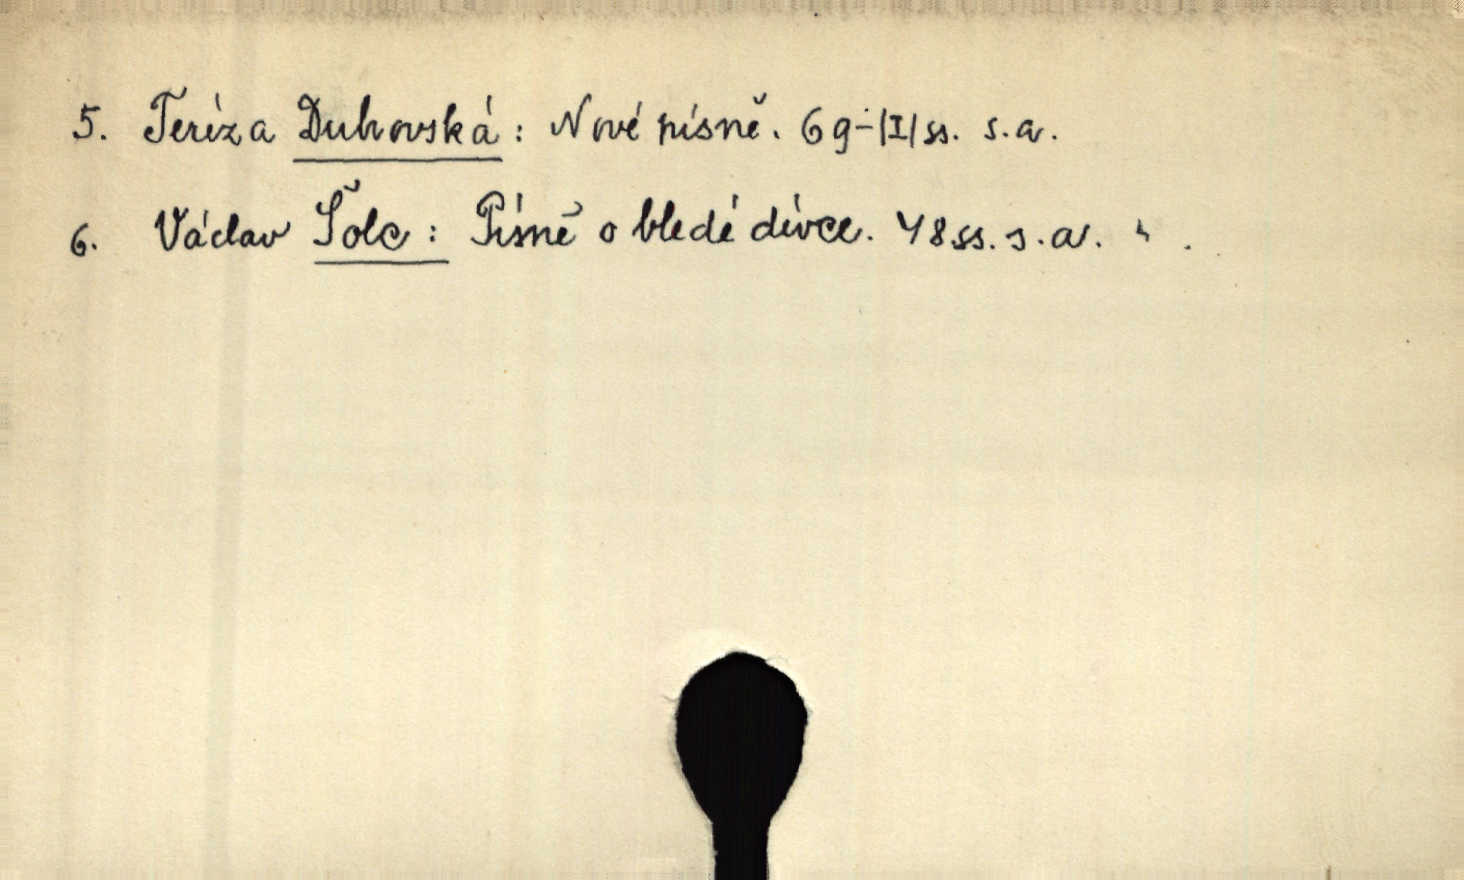 5. Teréza Dubrovská: Nové písně. 69-/I/ss. s.a.
6. Václav Šolc: Písně o bledé dívce. 48 ss. s.a.